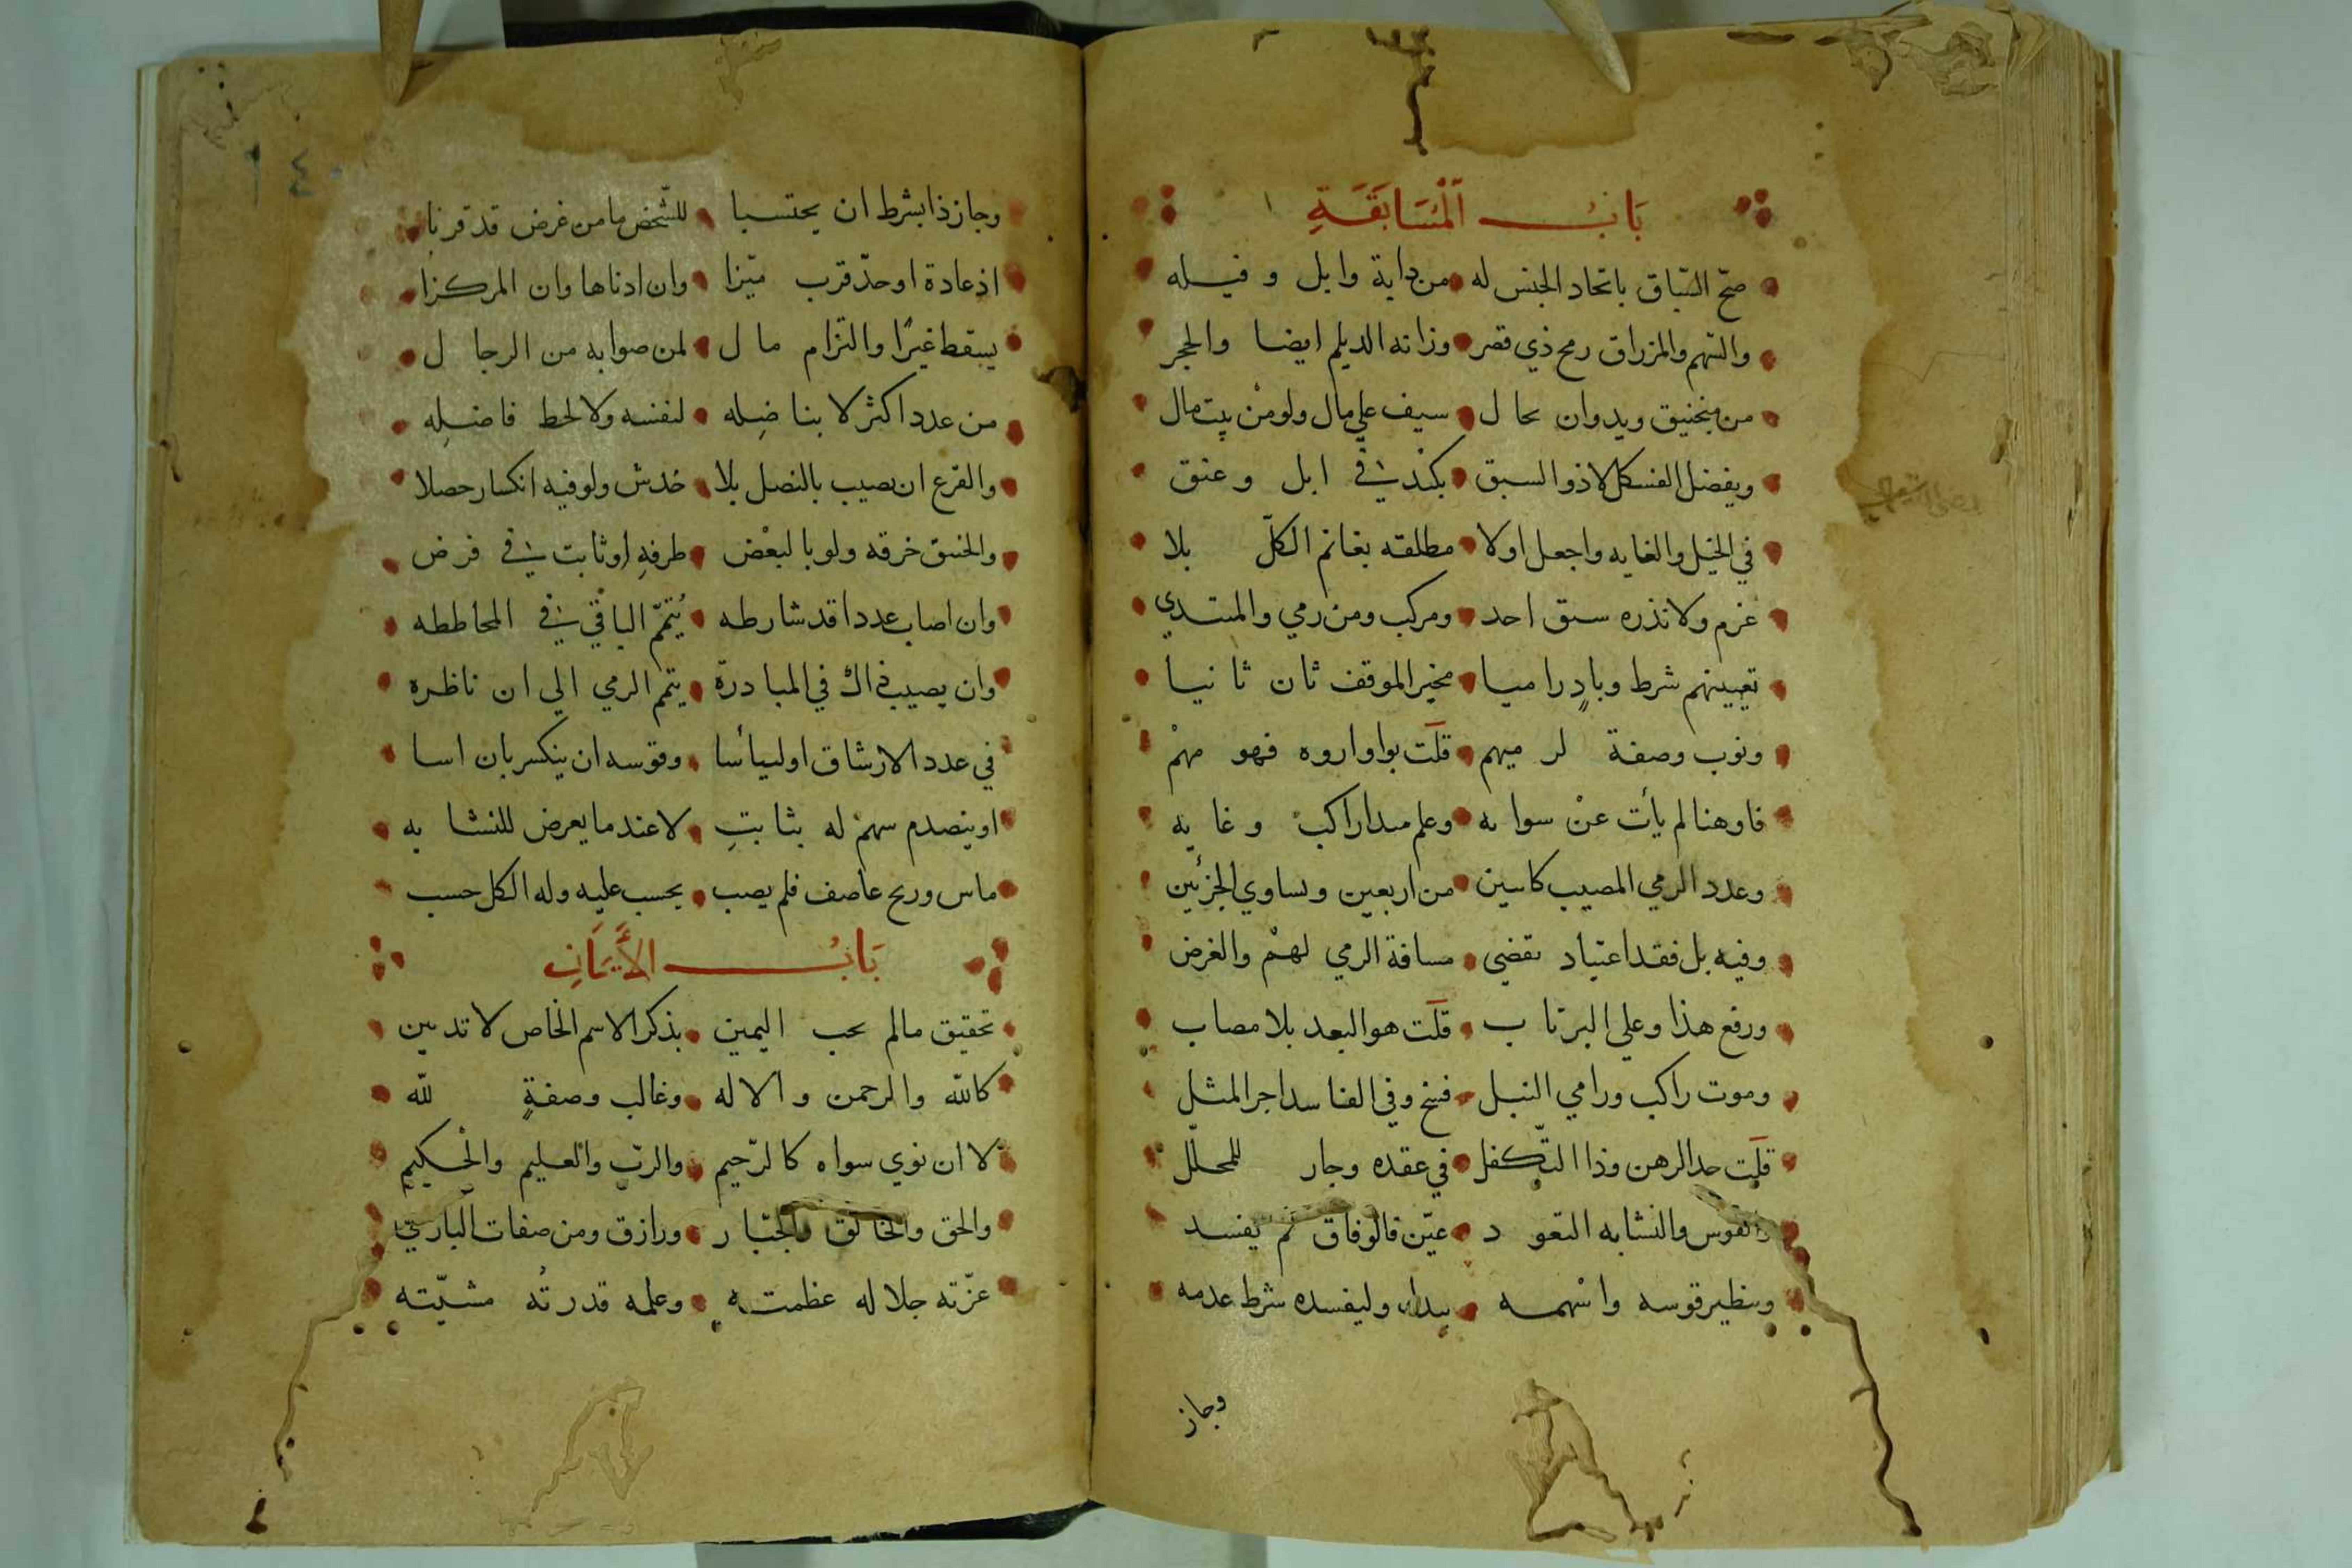 بَابُ الْمُسَابَقَةِ
صحّ السّباق باتحاد الجنس له من دابة وابل وفيله
والسّهم والمزراق رمح ذي قصر وزانه الديلم ايضا والحجر
من منجنيق ويد وان بحال سيف علي مال ولو من بيت مال
ويفضل الفسكل لا ذو السبق بكند في ابل وعنق
في الخيل والغايه واجعل اولا مطلقه بغانم الكلّ بلا
غرم ولا تذره سبق احد ومركب ومن رمي والمبتدي
تعيينهم شرط وبادٍ راميا مخير الموقف ثان ثانيا
ونوب وصفة لرميهم قلت بواو اروه فهو مهم
فاو هنا لم يأت عن سوابه وعلم مبدا راكب وغايه
وعدد الرمي المصيب كاسين من اربعين وتساوي الجزئين
وفيه بل فقد اعتياد تقضي مسافة الرمي لهم والغرض
ورفع هذا وعلي البرتاب قلت هو البعد بلا مصاب
وموت راكب ورامي النبل فسخ وفي الفاسد اجر المثل
قلت حد الرهن وذا التكفل في عقده وجاز للمحلل
والقوس والنشابه التعود عيّن فالوفاق ثم يفسد
وبنظير قوسه واسهمه بيدل وليفسده شرط عدمه
وجاز
١٤٠
وجاز ذا بشرط ان يحتسبا للشّخص ما من غرض قد قربا
اذ عادة او حدّ قرب ميّزا وان ادناها وان المركزا
يسقط غيرًا والتزام مال لمن صوابه من الرجال
من عدد اكثر لا بناضِله لنفسه ولا لحط فاضلِه
والقرع ان يصيب بالنصل بلا خدش ولو فيه انكسار حصلا
والخسق خرقه ولو بالبعض طرفهِ او ثابت في فرض
وان اصاب عددا قد شارطه يُتمّم الباقي في المحاططه
وان يصيب ذاك في المبادرة يتم الرمي الي ان ناظره
في عدد الارشاق او لييأسا وقوسه ان ينكسر بان اسا
او ينصدم سهم له بثابتِ لا عند ما يعرض للنشابه
ماس وريح عاصف فلم يصب يحسب عليه وله الكل حسب
بَابُ الأَيمَانِ
تحقيق ما لم يجب اليمين بذكر الاسم الخاص لا تديين
كاللّه والرحمن والاله وغالب وصفةٍ للّه
لا ان نوي سواه كالرّحيم والربّ والعليم والحكيم
والحق والخالق والجبّار ورازق ومن صفات الباري
عزّته جلاله عظمته وعلمه قدرتُه مشيّته